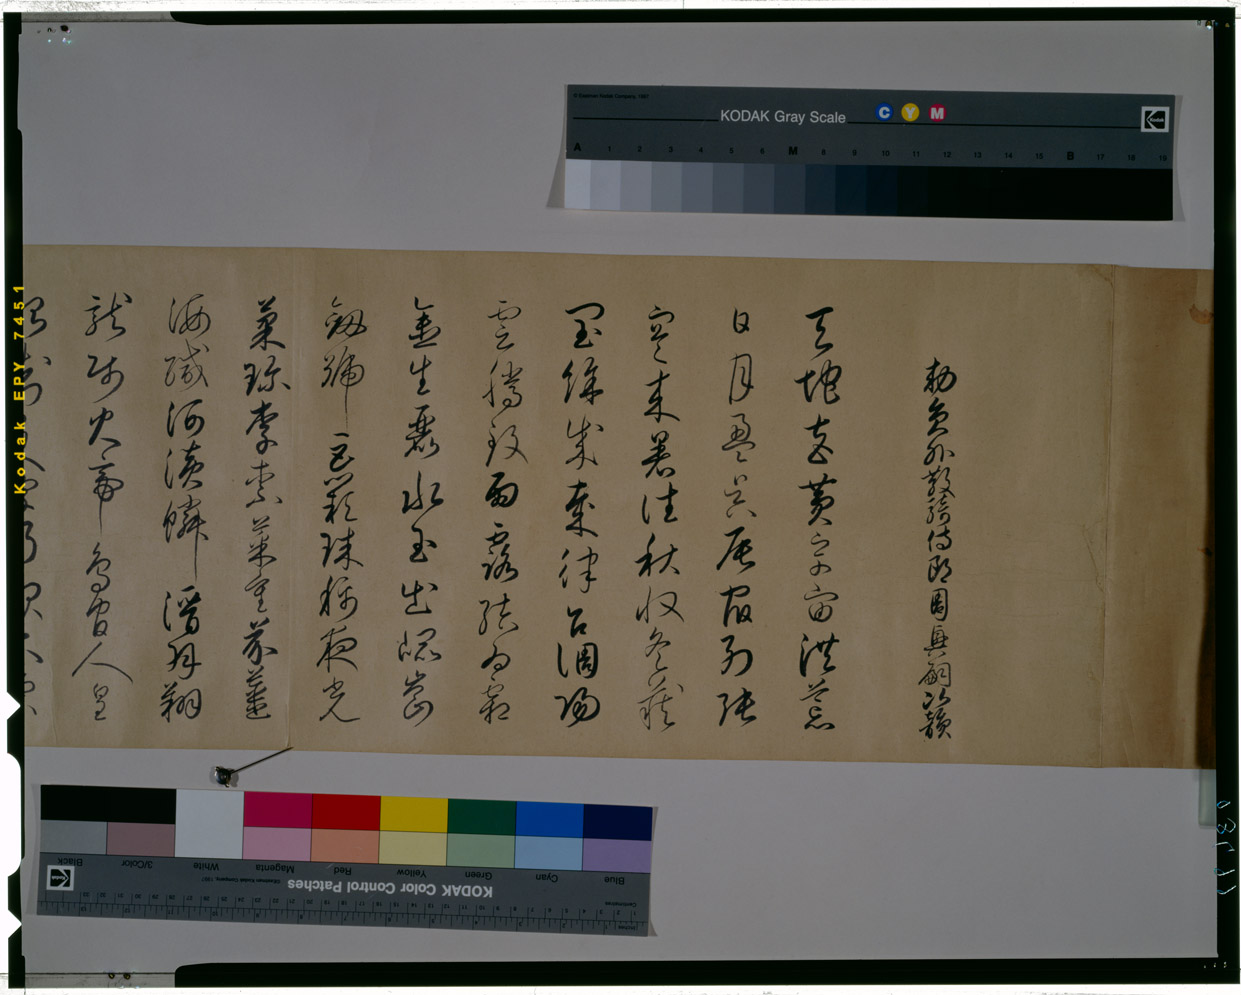 © Eastman Kodak Company, 1997
KODAK Gray Scale
C Y M
Kodak
A 1 2 3 4 5 6 M 8 9 10 11 12 13 14 15 B 17 18 19
勅員外散騎侍郎周興嗣次韻
天地玄黃宇宙洪荒
日月盈昃辰宿列張
寒來暑往秋收冬藏
閏餘成歲律召調陽
雲騰致雨露結為霜
金生麗水玉出崑崗
劍號巨闕珠稱夜光
菓珍李柰菜重芥薑
海鹹河淡鱗潛羽翔
龍師火帝鳥官人皇
Kodak EPY 7451
Blue Cyan Green Yellow Red Magenta White 3/Color Black
KODAK Color Control Patches